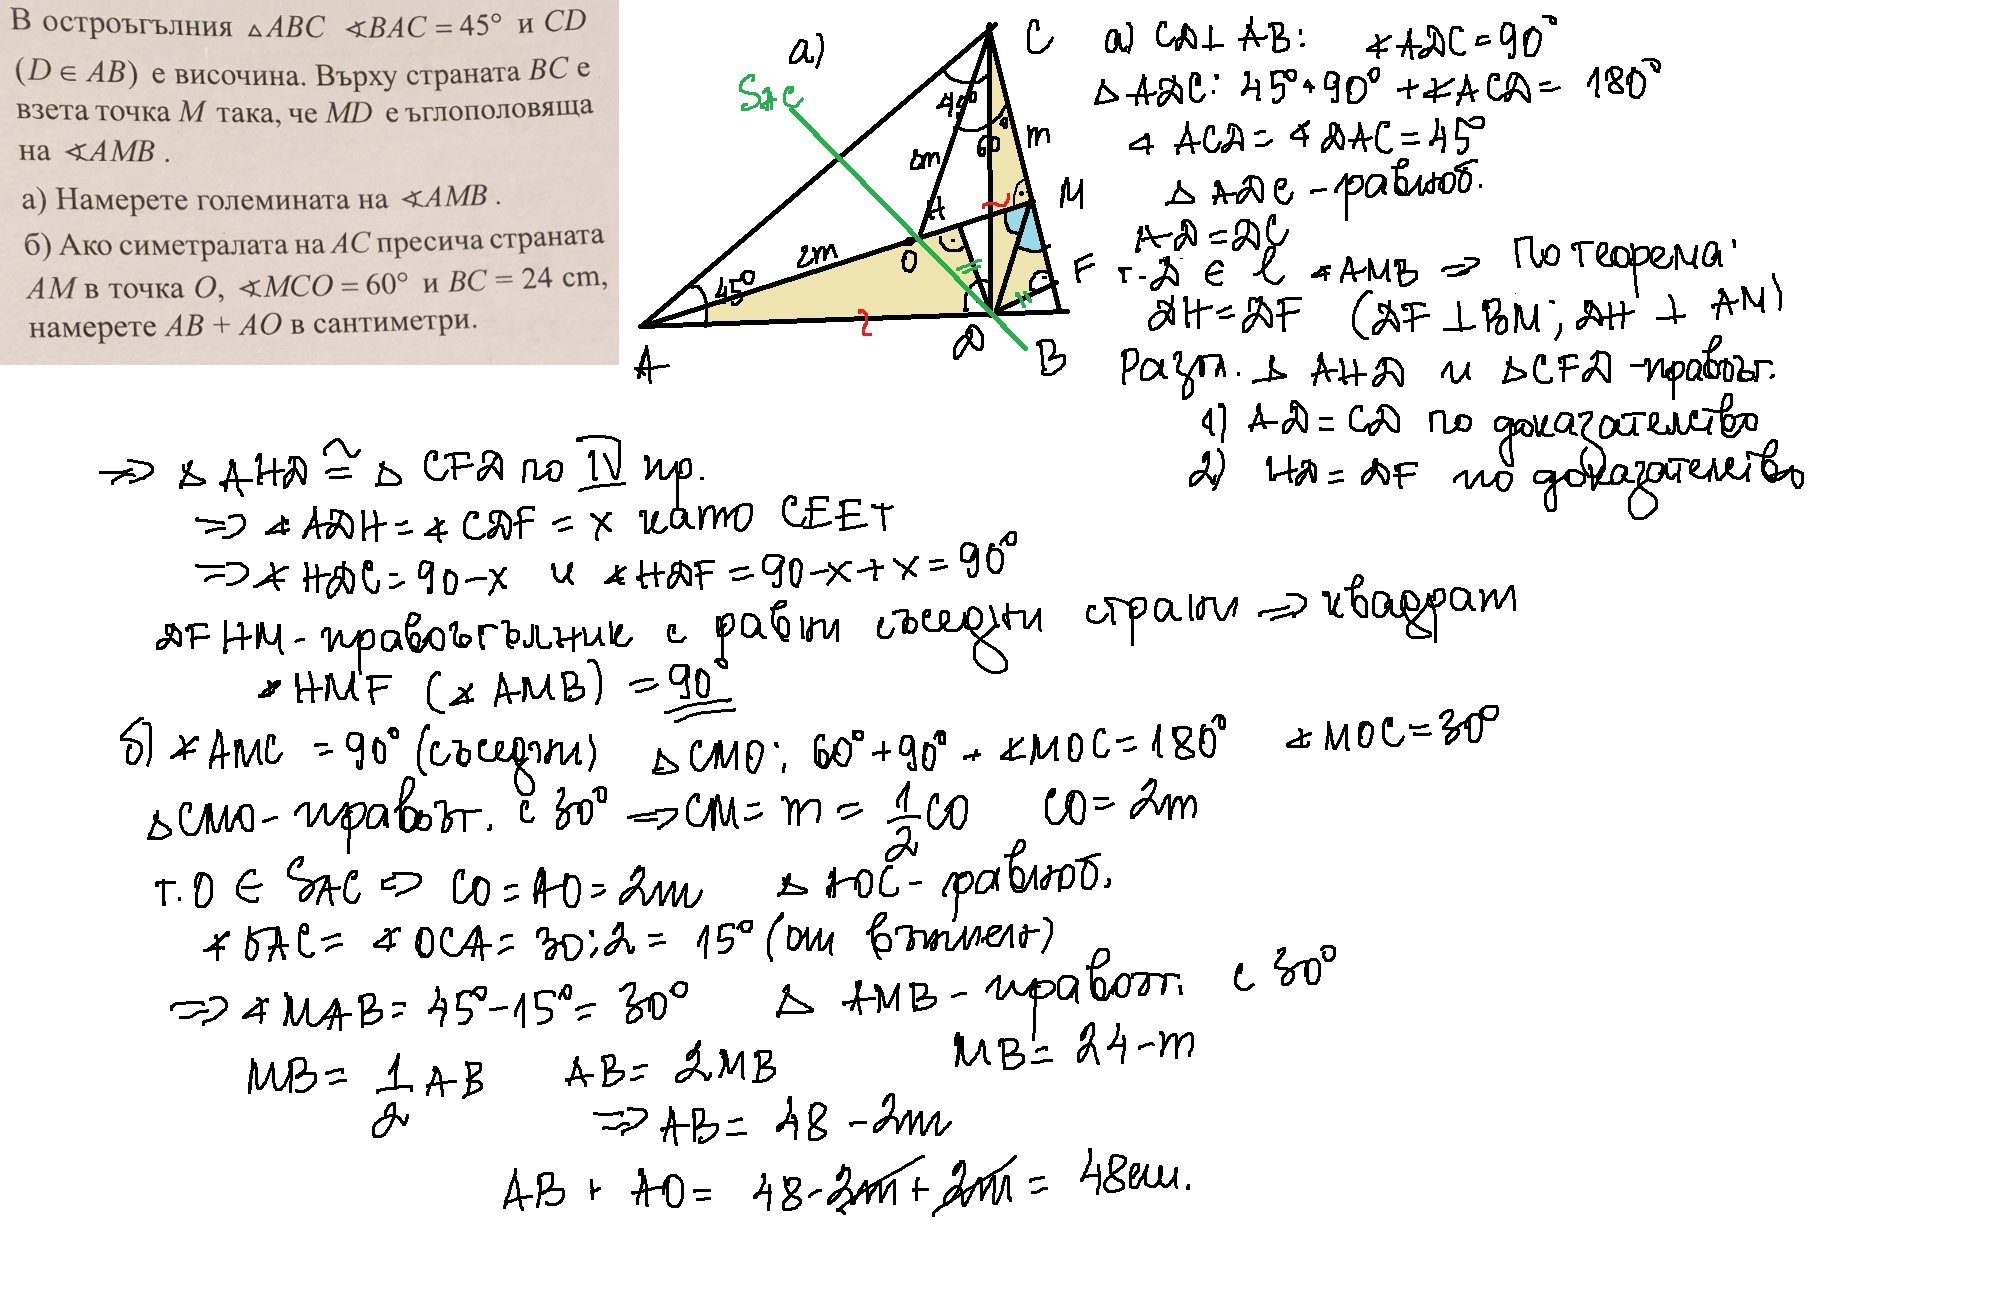 В остроъгълния △ABC ∢BAC = 45° и CD
(D ∈ AB) е височина. Върху страната BC е
взета точка M така, че MD е ъглополовяща
на ∢AMB .
а) Намерете големината на ∢AMB .
б) Ако симетралата на AC пресича страната
AM в точка O, ∢MCO = 60° и BC = 24 cm,
намерете AB + AO в сантиметри.
а)
SAC
C
45°
60
m
2m
M
H
2m
O
F
45°
A
D
B
а) CD⊥AB: ∢ADC=90°
△ADC: 45°+90°+∢ACD=180°
∢ACD=∢DAC=45°
△ADC-равноб.
AD=DC
т.D ∈ l ∢AMB ⇒ По теорема:
DH=DF (DF⊥BM; DH⊥AM)
Разгл. △AHD и △CFD-правоъг.
1) AD=CD по доказателство
2) HD=DF по доказателство
⇒ △AHD≅△CFD по IV пр.
⇒ ∢ADH=∢CDF=x като СЕЕТ
⇒ ∢HDC=90-x и ∢HDF=90-x+x=90°
DFHM-правоъгълник с равни съседни страни ⇒ квадрат
∢HMF (∢AMB) = 90°
б) ∢AMC = 90° (съседни) △CMO: 60°+90°+∢MOC=180° ∢MOC=30°
△CMO-правоъг. с 30° ⇒ CM=m=1/2CO CO=2m
т.O ∈ SAC ⇒ CO=AO=2m △AOC-равноб.
∢OAC=∢OCA=30:2=15° (от външен)
⇒ ∢MAB=45°-15°=30° △AMB-правоъг. с 30°
MB=1/2AB AB=2MB MB=24-m
⇒ AB=48-2m
AB+AO=48-2m+2m=48см.